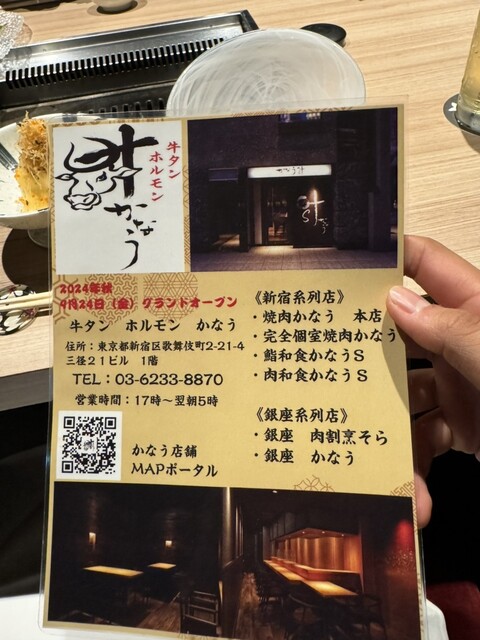 牛タン
ホルモン
叶
かなう
かなう叶
叶
かなう
2024年秋
9月24日（金）グランドオープン
牛タン ホルモン かなう
住所：東京都新宿区歌舞伎町2-21-4
三経２１ビル 1階
TEL：03-6233-8870
営業時間：17時～翌朝5時
かなう店舗
MAPポータル
《新宿系列店》
・焼肉かなう 本店
・完全個室焼肉かなう
・鮨和食かなうＳ
・肉和食かなうＳ
《銀座系列店》
・銀座 肉割烹そら
・銀座 かなう